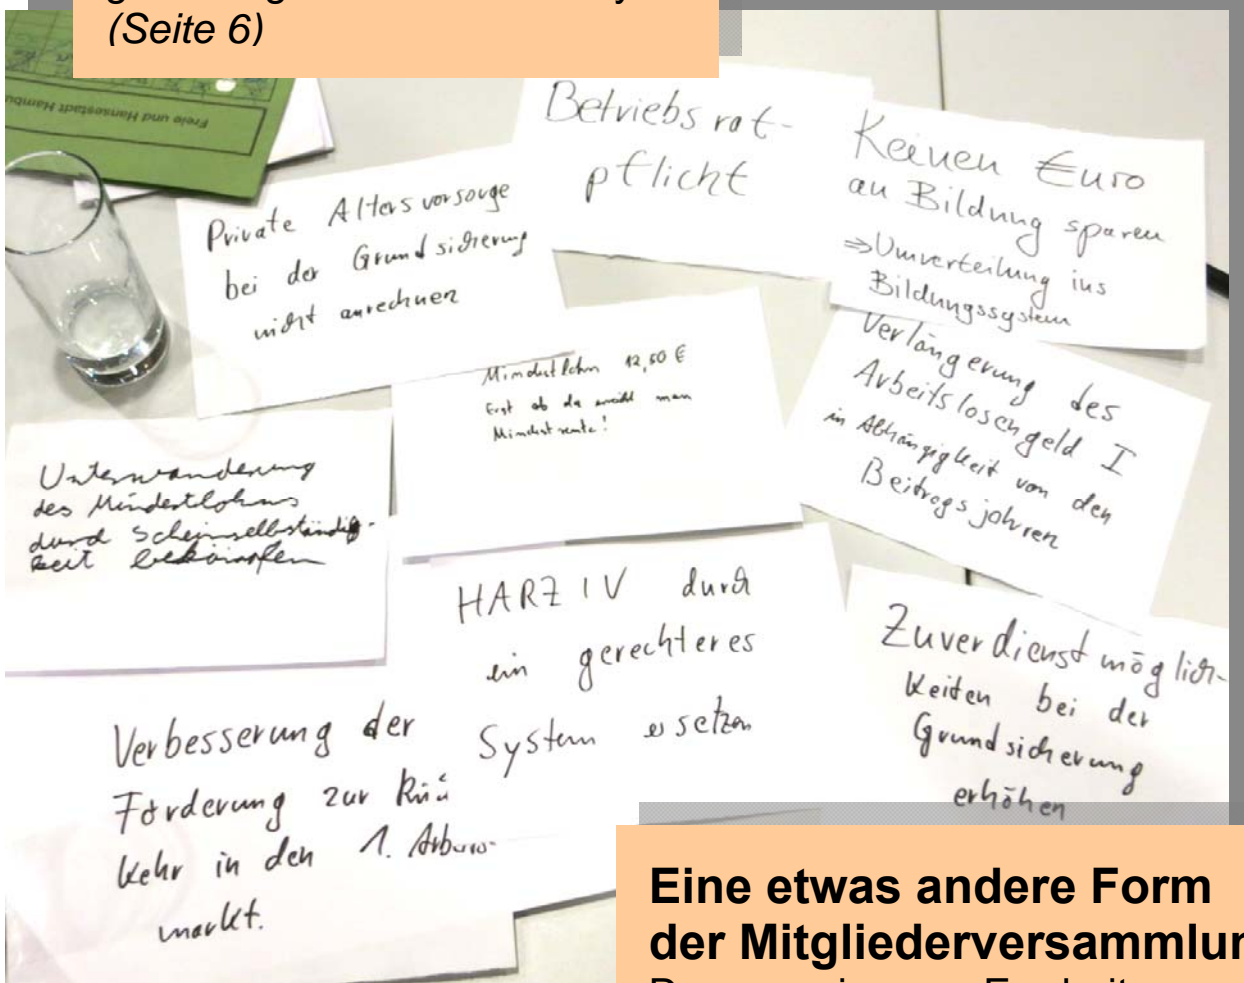 (Seite 6)
Freie und Hansestadt Hambu
Betriebsrat-
pflicht
Keinen Euro
an Bildung sparen
⇒Umverteilung ins
Bildungssystem
Private Altersvorsorge
bei der Grundsicherung
nicht anrechnen
Mindestlohn 12,50 €
Erst ab da erreicht man
Mindestrente!
Verlängerung des
Arbeitslosengeld I
in Abhängigkeit von den
Beitragsjahren
Unterwanderung
des Mindestlohns
durch Scheinselbständig-
keit bekämpfen
HARZ IV durch
ein gerechteres
System ersetzen
Zuverdienstmöglich-
keiten bei der
Grundsicherung
erhöhen
Verbesserung der
Förderung zur
kehr in den 1.
markt.
Eine etwas andere Form
der Mitgliederversammlun